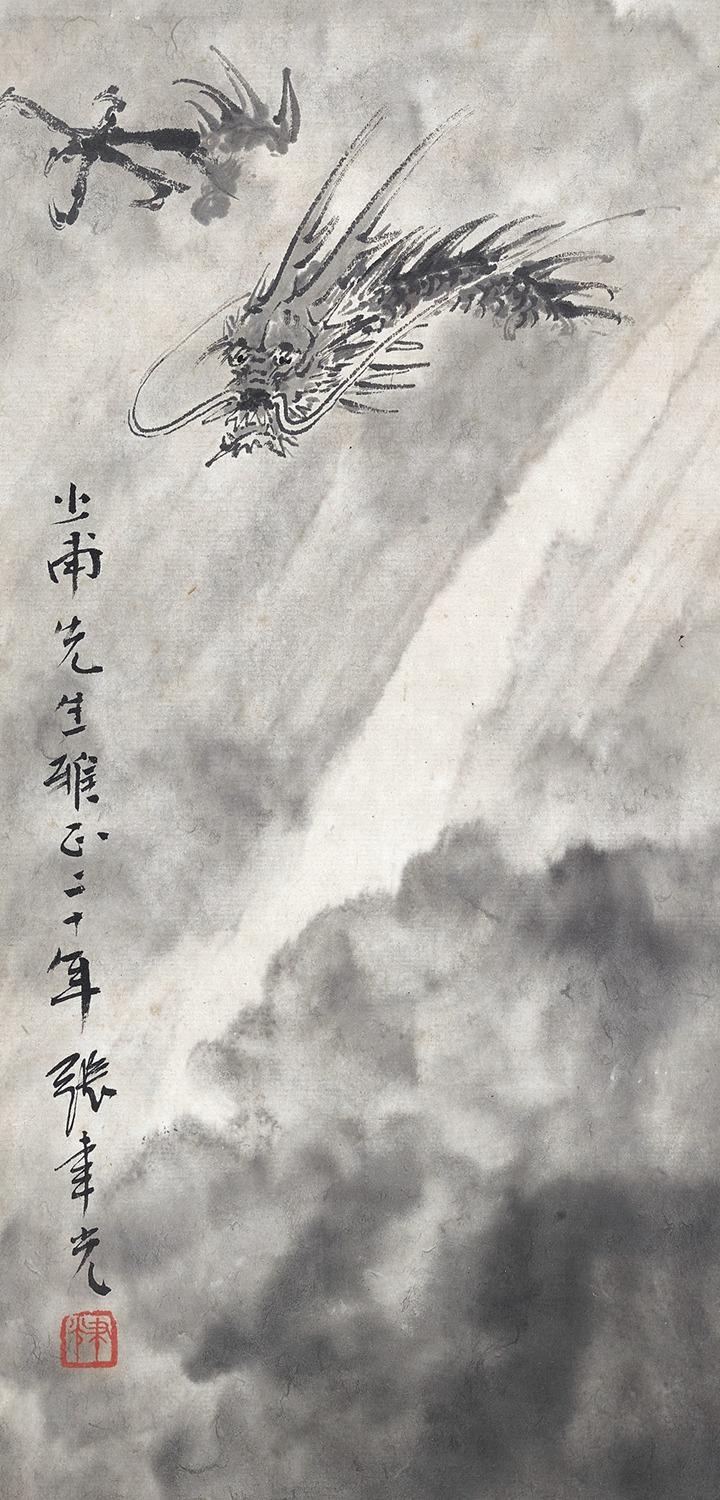 少甫先生雅正二十年張聿光